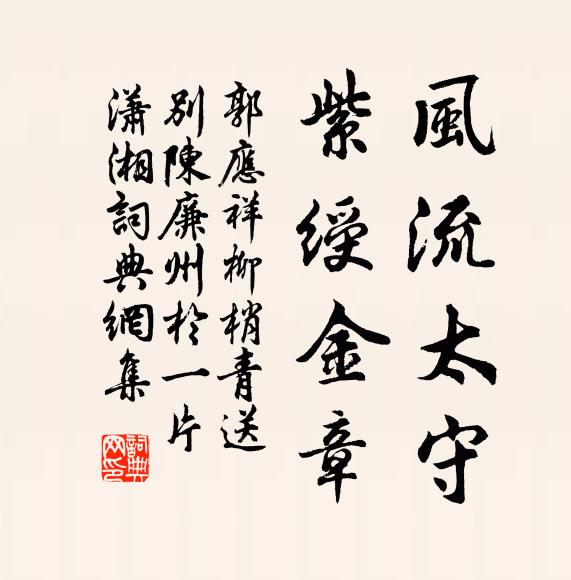 風流太守
紫綬金章
郭應祥柳梢青送
別陳廉州於一片
瀟湘詞典網集
詞典
网印